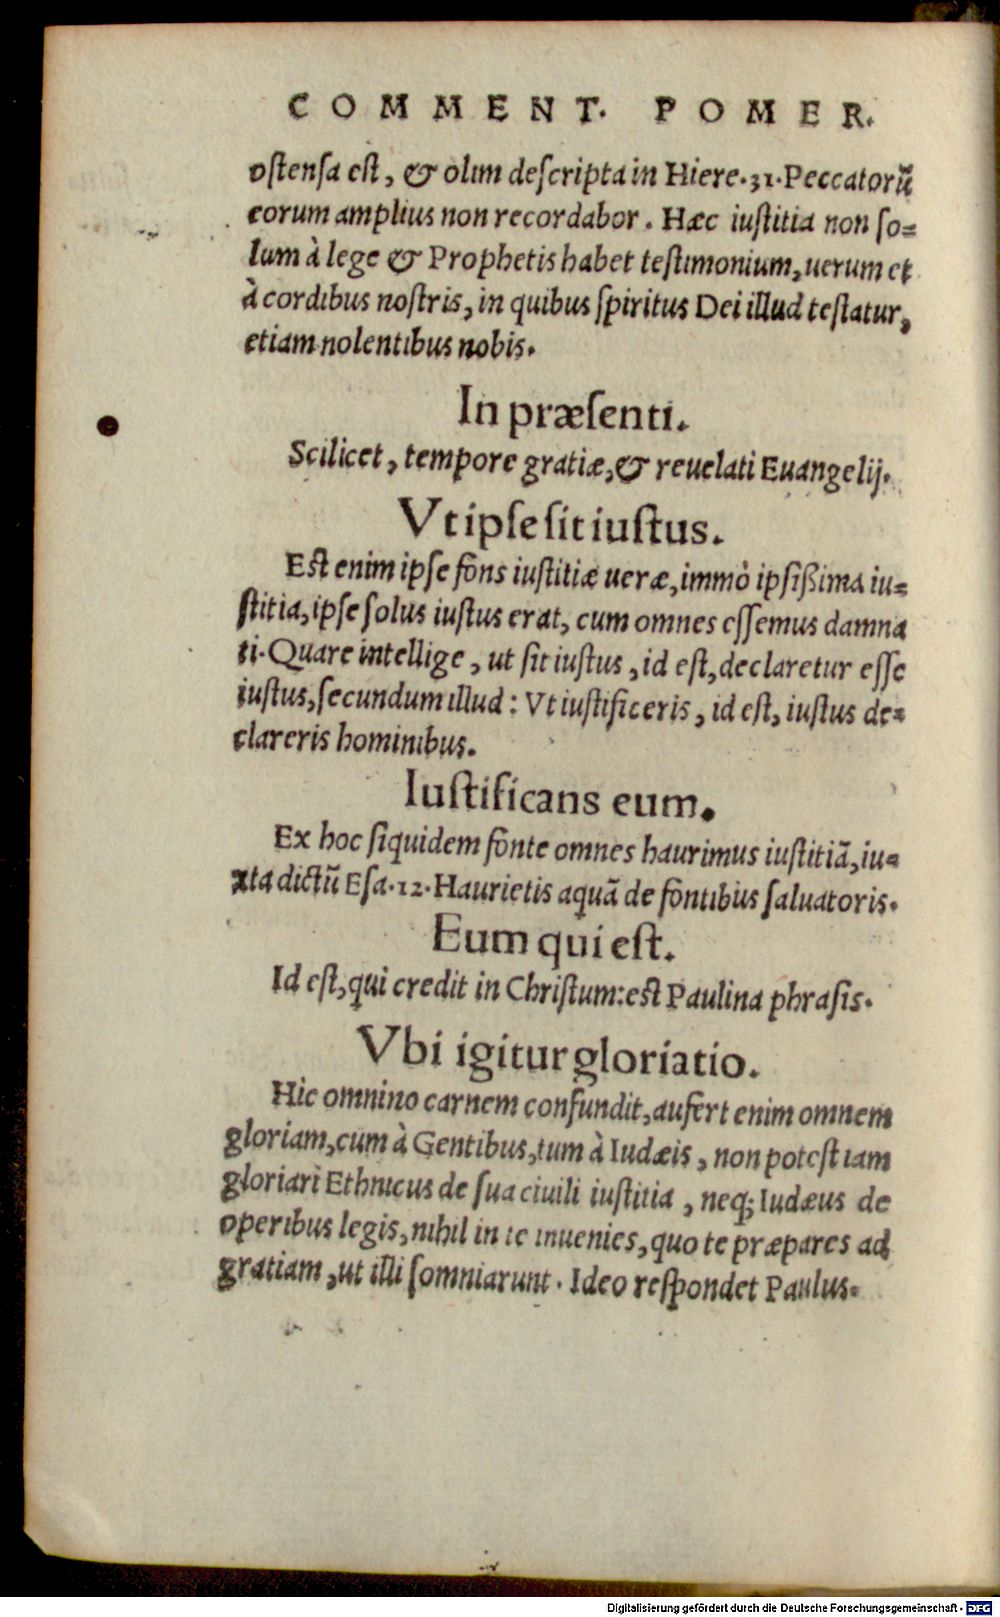 COMMENT. POMER.
ostensa est, & olim descripta in Hiere. 31. Peccatorū
eorum amplius non recordabor. Hæc iustitia non so=
lum à lege & Prophetis habet testimonium, uerum et
à cordibus nostris, in quibus spiritus Dei illud testatur,
etiam nolentibus nobis.
In præsenti.
Scilicet, tempore gratiæ, & reuelati Euangelij.
Vt ipse sit iustus.
Est enim ipse fons iustitiæ ueræ, immò ipsißima iu=
stitia, ipse solus iustus erat, cum omnes essemus damna
ti. Quare intellige, ut sit iustus, id est, declaretur esse
iustus, secundum illud: Vt iustificeris, id est, iustus de=
clareris hominibus.
Iustificans eum.
Ex hoc siquidem fonte omnes haurimus iustitiā, iu=
xta dictū Esa. 12. Haurietis aquā de fontibus saluatoris.
Eum qui est.
Id est, qui credit in Christum: est Paulina phrasis.
Vbi igitur gloriatio.
Hic omnino carnem confundit, aufert enim omnem
gloriam, cum à Gentibus, tum à Iudæis, non potest iam
gloriari Ethnicus de sua ciuili iustitia, neq; Iudæus de
operibus legis, nihil in te inuenies, quo te præpares ad
gratiam, ut illi somniarunt. Ideo respondet Paulus.
Digitalisierung gefördert durch die Deutsche Forschungsgemeinschaft - DFG